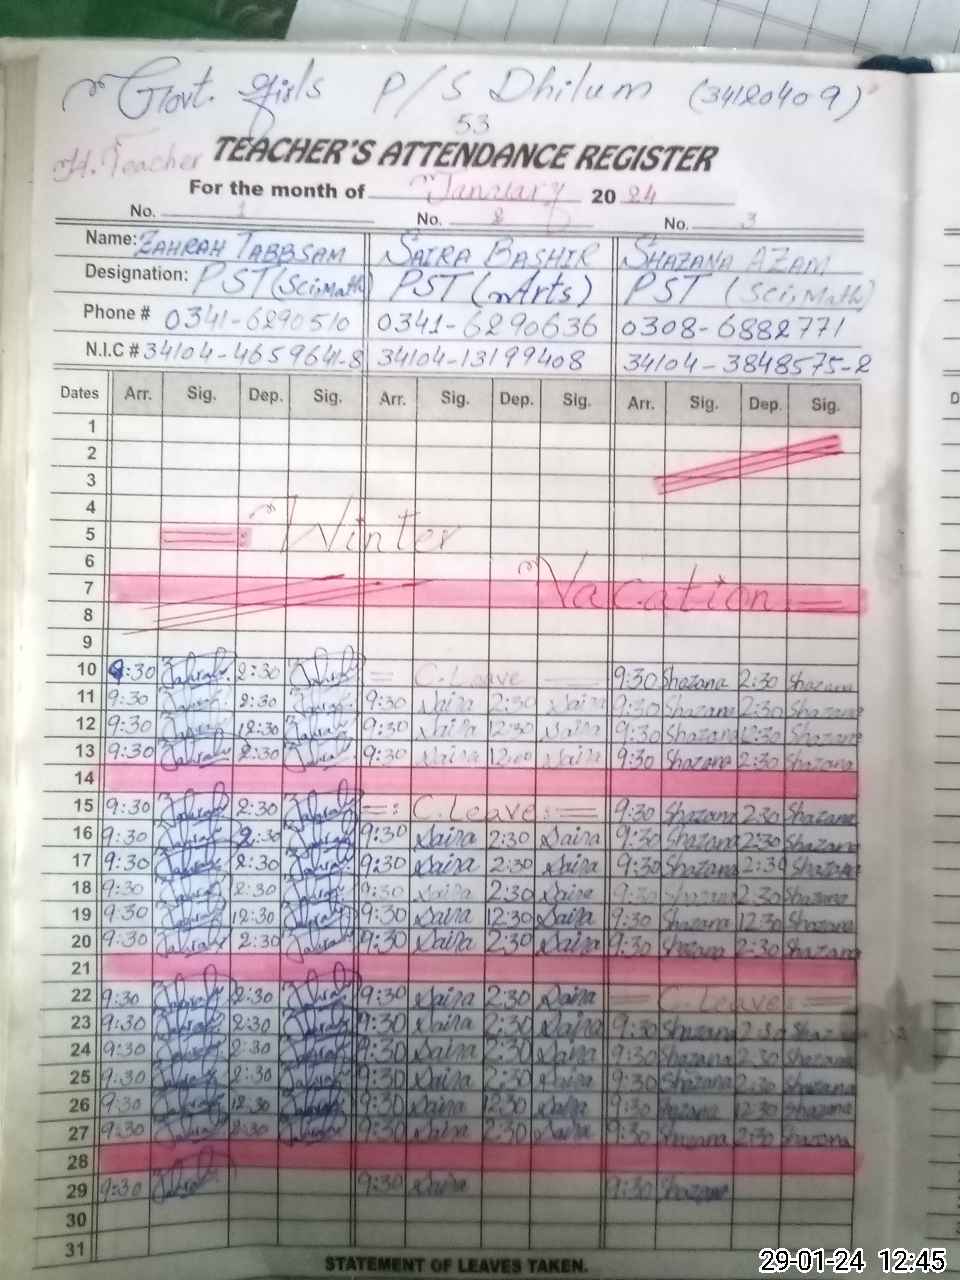 Govt. Girls P/S Dhilum (34120409)
53
H. Teacher TEACHER'S ATTENDANCE REGISTER
For the month of January 2024
No. 1 No. 2 No. 3
Name: ZAHRAH TABBSAM SAIRA BASHIR SHAZANA AZAM
Designation: PST (Sci, Math) PST (Arts) PST (Sci, Math)
Phone # 0341-6290510 0341-6290636 0308-6882771
N.I.C # 34104-4659641-8 34104-13199408 34104-3848575-2
Dates Arr. Sig. Dep. Sig. Arr. Sig. Dep. Sig. Arr. Sig. Dep. Sig.
1
2
3
4
5 Winter
6
7 Vacation
8
9
10 9:30 Zahrah 2:30 Zahrah C. Leave 9:30 Shazana 2:30 Shazana
11 9:30 Zahrah 2:30 Zahrah 9:30 Saira 2:30 Saira 9:30 Shazana 2:30 Shazana
12 9:30 Zahrah 12:30 Zahrah 9:30 Saira 12:30 Saira 9:30 Shazana 12:30 Shazana
13 9:30 Zahrah 2:30 Zahrah 9:30 Saira Saira 9:30 Shazana 2:30 Shazana
14
15 9:30 Zahrah 2:30 Zahrah C. Leave 9:30 Shazana 2:30 Shazana
16 9:30 Zahrah 2:30 Zahrah 9:30 Saira 2:30 Saira 9:30 Shazana 2:30 Shazana
17 9:30 Zahrah 2:30 Zahrah 9:30 Saira 2:30 Saira 9:30 Shazana 2:30 Shazana
18 9:30 Zahrah 2:30 Zahrah 9:30 Saira 2:30 Saira 9:30 Shazana 2:30 Shazana
19 9:30 Zahrah 12:30 Zahrah 9:30 Saira 12:30 Saira 9:30 Shazana 12:30 Shazana
20 9:30 Zahrah 2:30 Zahrah 9:30 Saira 2:30 Saira 9:30 Shazana 2:30 Shazana
21
22 9:30 Zahrah 2:30 Zahrah 9:30 Saira 2:30 Saira C. Leave
23 9:30 Zahrah 2:30 Zahrah 9:30 Saira 2:30 Saira 9:30 Shazana 2:30
24 9:30 Zahrah 2:30 Zahrah 9:30 Saira 2:30 Saira 9:30 Shazana 2:30 Shazana
25 9:30 Zahrah 2:30 Zahrah 9:30 Saira 2:30 Saira 9:30 Shazana 2:30 Shazana
26 9:30 Zahrah 12:30 Zahrah 9:30 Saira 12:30 Saira 9:30 Shazana 12:30 Shazana
27 9:30 Zahrah 2:30 Zahrah 9:30 Saira 2:30 Saira 9:30 Shazana 2:30 Shazana
28
29 9:30 Zahrah 9:30 Saira 9:30 Shazana
30
31
STATEMENT OF LEAVES TAKEN.
29-01-24 12:45